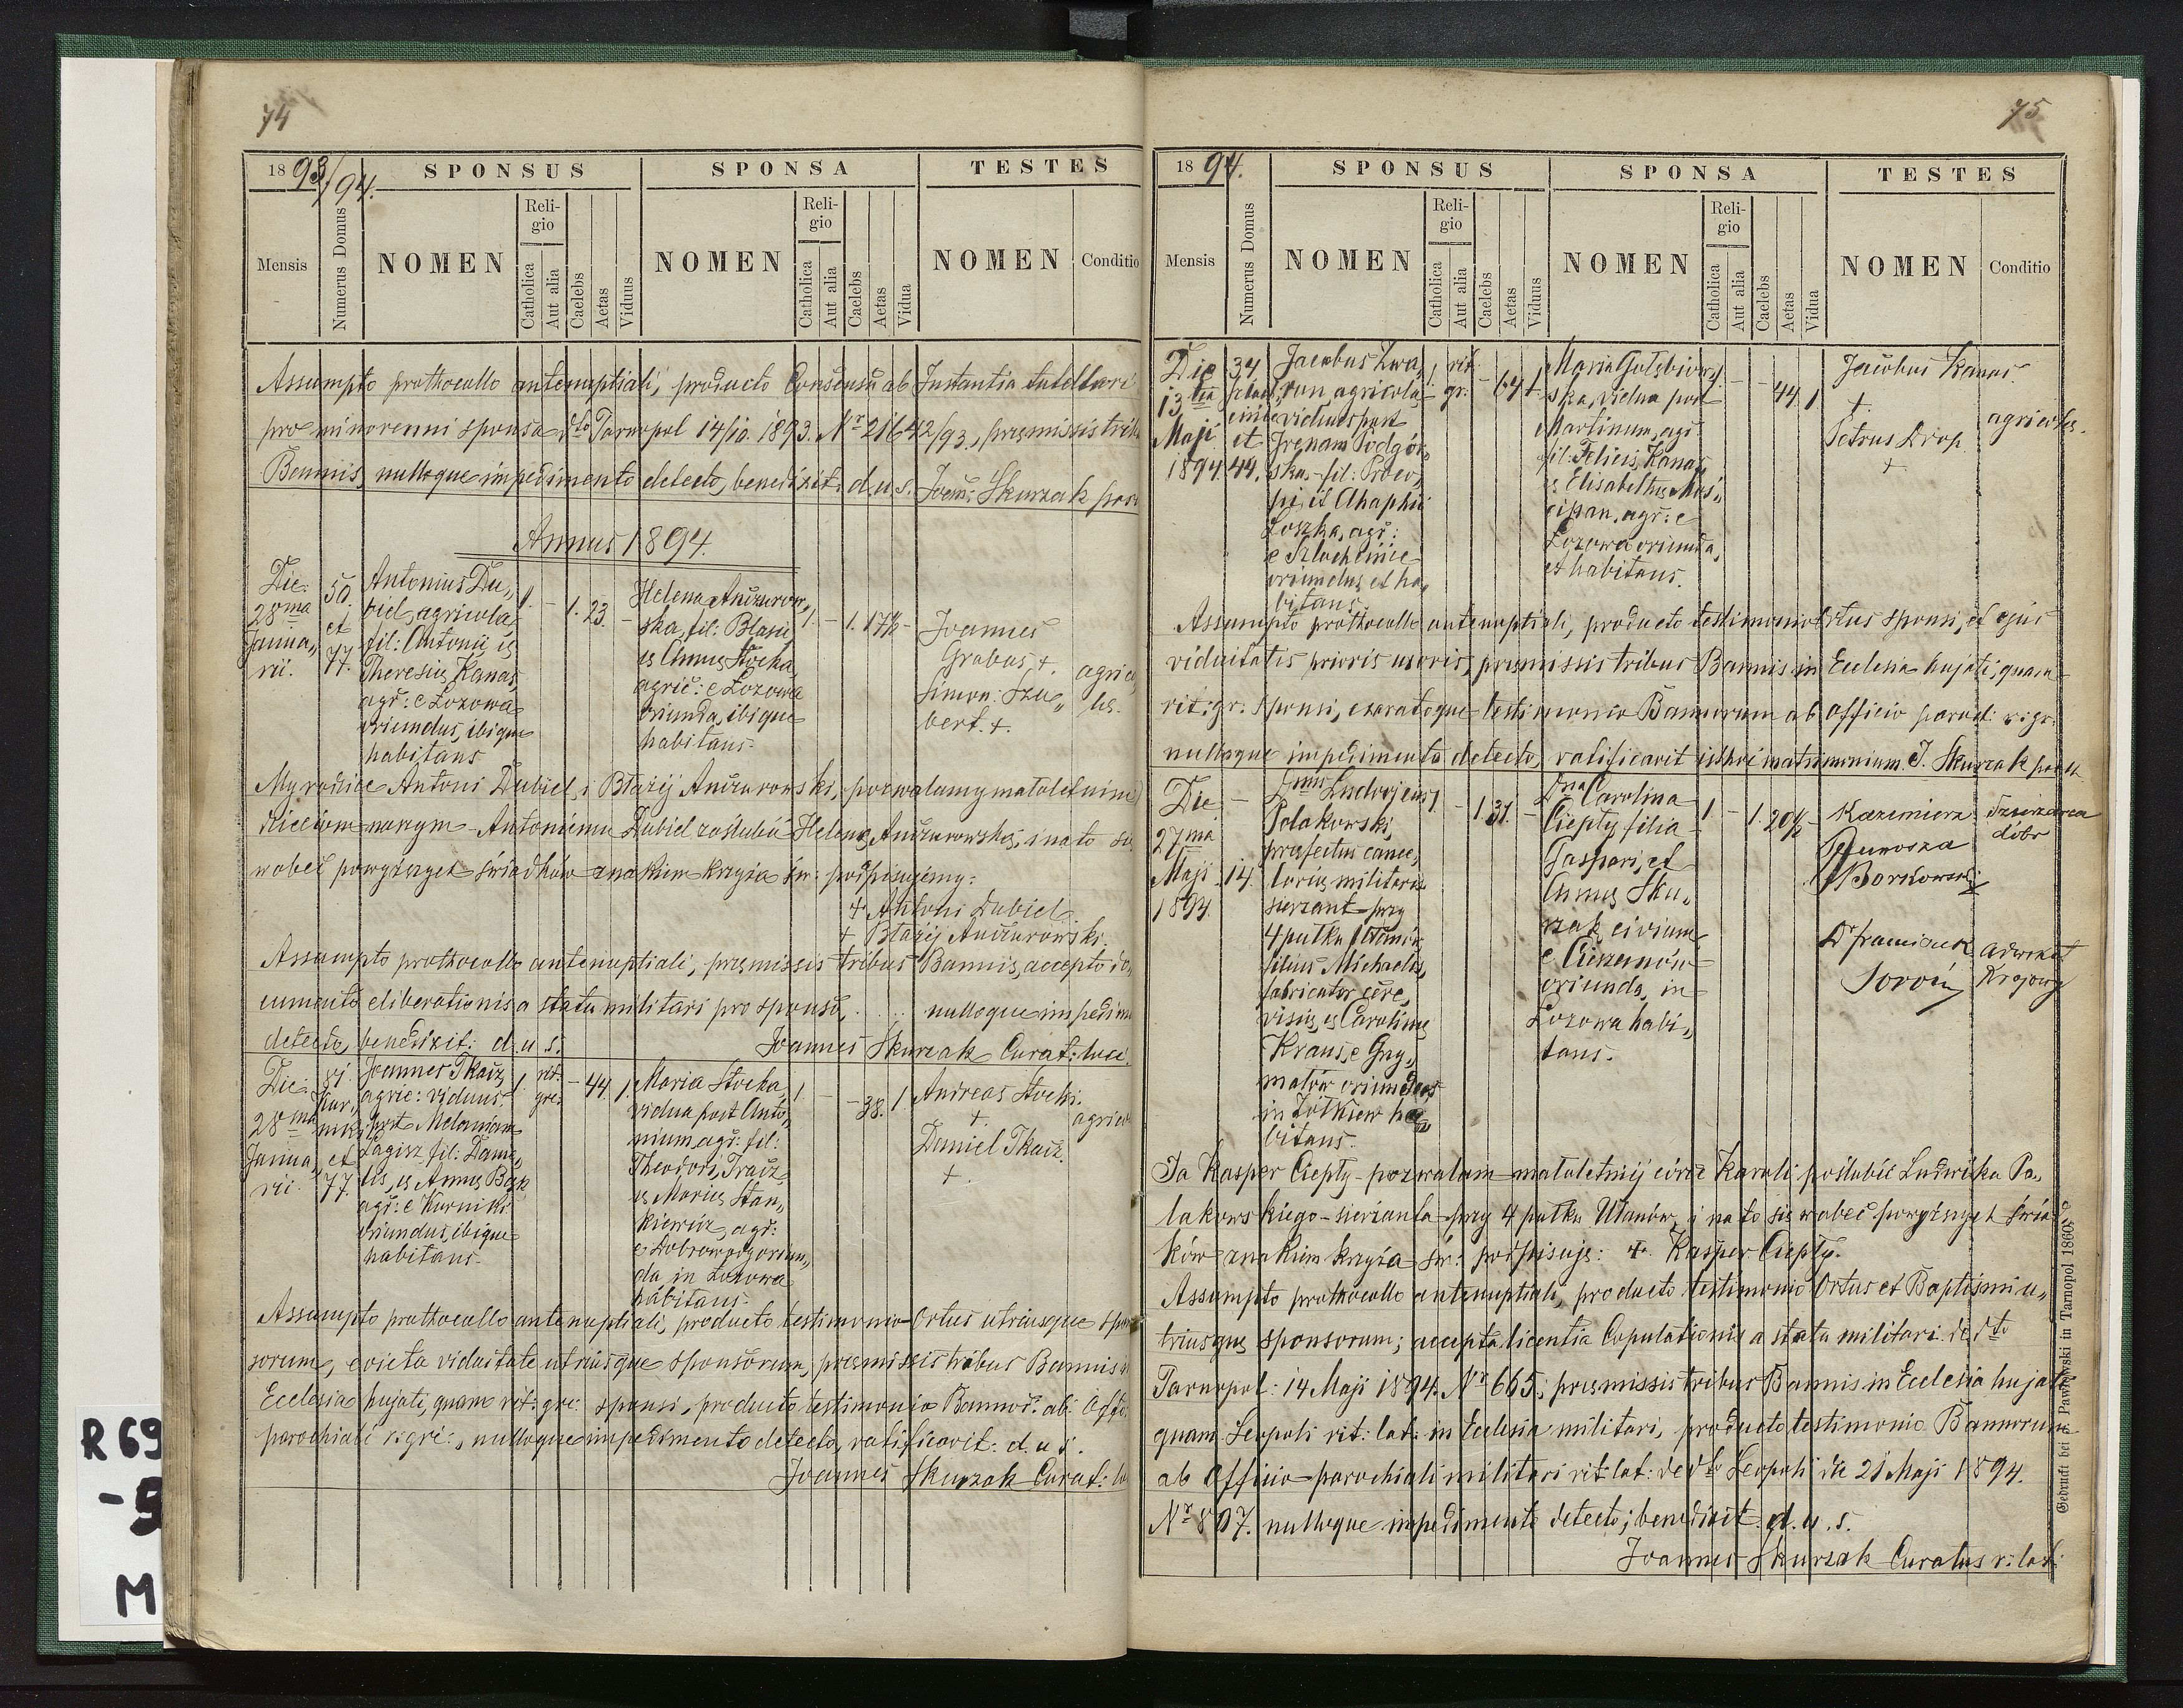 74
18 93/94.
SPONSUS
SPONSA
TESTES
Mensis
Numerus Domus
NOMEN
Reli-
gio
Catholica
Aut alia
Caelebs
Aetas
Viduus
NOMEN
Reli-
gio
Catholica
Aut alia
Caelebs
Aetas
Vidua
NOMEN
Conditio
Assumpto prothocollo antenuptiali, producto Consensu ab Instantia tutellari
pro minorenni sponsa dto Tarnopol 14/10. 1893. Nr 21642/93., premissis trib
Bannis, nulloque impedimento detecto, benedixit: d. u. s. Joan: Skurzak
Annus 1894.
Die
28ma
Janua„
rii.
50.
et
77.
Antonius Du„
biel, agricola
fil: Antonii, et
Theresiæ Kanas,
agr: e Łozowa
oriundus, ibique
habitans
1. - 1. 23. -
Helena Andzurow„
ska, fil: Blasii,
et Annæ Stocka,
agric: e Łozowa
oriunda, ibique
habitans.
1. - 1. 17½ -
Joannes
Grabas, +.
Simon: Szu„
bert. +.
agrico
læ.
My rodzice Antoni Dubiel, i Błażéj Andzurowski, pozwalamy małoletnim
dzieciom naszym - Antoniemu Dubiel zaślubić Helenę Andzurowską, i na to
wobec powyższych świadków znakiem krzyża św: podpisujemy:
+ Antoni Dubiel.
+ Błażéj Andzurowski.
Assumpto prothocollo antenuptiali, premissis tribus Bannis, accepto do„
cumento eliberationis a statu militari pro sponso, . . . nulloque impedime
detecto, benedixit: d. u. s.
Joannes Skurzak Curat:
Die
28ma
Janua„
rii.
Kur„
niki
et
77.
Joannes Tkacz,
agric: viduus
post Melaniam
Łagisz, fil: Dani„
lis, et Annæ Bąk
agr: e Kurniki
oriundus, ibique
habitans.
1. rit. gr: - 44. 1.
Maria Stocka,
vidua post Anto„
nium, agr: fil:
Theodori, Tracz
et Mariæ Stan„
kiewicz, agr:
e Dobrowody oriun„
da in Łozowa
habitans.
1 - - 38. 1.
Andreas Stocki.
+.
Daniel Tkacz.
+.
agrico
Assumpto prothocollo antenuptiali, producto testimonio Ortus utriusque spon
sorum, evicta viduitate utriusque sponsorum, premissis tribus Bannis
Ecclesia hujati, quam rit: gr: sponsi, producto testimonio Bannor. ab. Offi
parochiali r. gr:, nulloque impedimento detecto, ratificavit: d. u. s.
Joannes Skurzak Curat:
75
18 94.
SPONSUS
SPONSA
TESTES
Mensis
Numerus Domus
NOMEN
Reli-
gio
Catholica
Aut alia
Caelebs
Aetas
Viduus
NOMEN
Reli-
gio
Catholica
Aut alia
Caelebs
Aetas
Vidua
NOMEN
Conditio
Die
13tia
Maji
1894.
34
et
44.
Jacobus Zwa„
ryon, agricola,
viduus post
Irenam Podgór„
ska, - fil: Proco„
pi, et Ahaphii
Łoszka, agr:
e Szlachcińce
oriundus et ha„
bitans.
1 rit. gr: - 64 1.
Maria Gołębiow„
ska, vidua post
Martinum, agr
fil: Felicis, Kanas,
et Elisabethæ Moś„
cipan, agr: e
Łozowa oriunda,
et habitans.
1. - - 44. 1
Jacobus Kanas.
+.
Petrus Drop.
+
agricolæ.
Assumpto prothocollo antenuptiali, producto testimonio Ortus sponsi, et ejus
viduitatis prioris uxoris, premissis tribus Bannis in Ecclesia hujati, quam
rit: gr: sponsi, exaratoque testimonio Bannorum ab officio paroch: r. gr.
nulloque impedimento detecto, ratificavit isthoc matrimonium. J. Skurzak
Die
27ma
Maji
1894.
14.
Dnus Ludovicus
Polakowski,
præfectus cance„
lariæ militaris
sierżant przy
4 pułku Ułanów,
filius Michaelis,
fabricator cere„
visiæ, et Carolinæ
Kraus, e Gry„
matów oriundus,
in Żółkiew ha„
bitans.
1 - 1. 31. -
Dna Carolina
Ciepły, filia
Gaspari, et
Annæ Sku„
rzak, civium
e Cieszanów
oriunda, in
Łozowa habi„
tans.
1 - 1. 20½ -
Kazimierz
Borkowski
Dzierżawca
dóbr
Dr Franciszek
adwokat
Krajowy
Ja Kasper Ciepły - pozwalam małoletniéj córce Karoli poślubić Ludwika Po„
lakowskiego - sierżanta przy 4 pułku Ułanów, i na to się wobec powyższych świad
ków znakiem krzyża św: podpisuję: +. Kasper Ciepły.
Assumpto prothocollo antenuptiali, producto testimonio Ortus et Baptismi u„
triusque sponsorum; accepta licentia Copulationis a statu militari de dto
Tarnopol: 14 Maji 1894. Nr 665; premissis tribus Bannis in Ecclesia hujati
quam Leopoli rit: lat: in Ecclesia militari, producto testimonio Bannorum
ab Officio parochiali militari rit: lat: de dto Leopoli die 21 Maji 1894.
Nr 807. nulloque impedimento detecto; benedixit: d. u. s.
Joannes Skurzak Curatus r: lat:
Gedruckt bei J. Pawłowski in Tarnopol 1860.
R 69
M